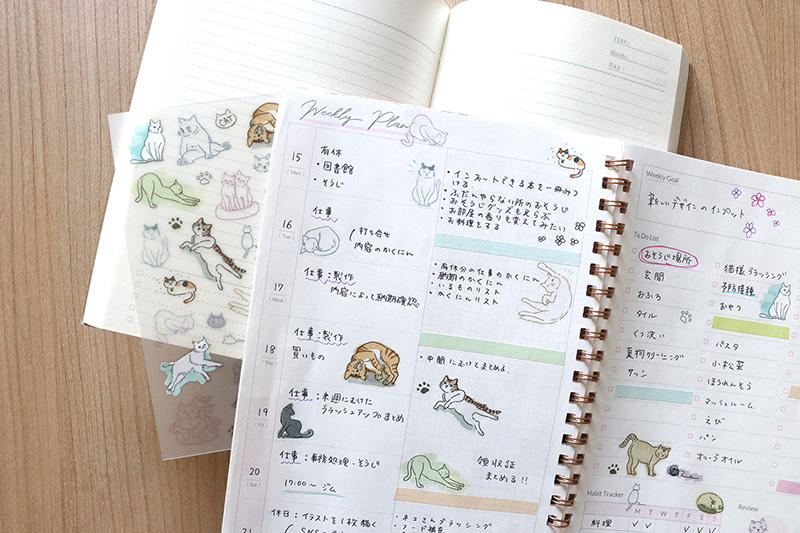 YEAR :
Month :
Day :
CAT
Weekly Plan
15
(Mon)
有休
・図書館
・そうじ
・インプットできる本を一冊みつける。
・ふだんやらない所のおそうじ
・おそうじグッズも足らぶ
・お部屋の香りも変えてみたい
・お料理をする
16
(Tue)
仕事
打ち合せ
内容のかくにん
17
(Wed)
仕事：製作
内容によって納期確認
・有休分の仕事のかくにん
・納期のかくにん
・いるものリスト
・かくにんリスト
18
(Thu)
仕事：製作
買いもの
・中間にむけてまとめる
19
(Fri)
仕事：来週にむけた
ブラッシュアップまとめ
20
(Sat)
仕事：事務処理、そうじ
17:00〜 ジム
領収証
まとめる!!
21
休日：イラストを1枚描く
・ネコさんブラッシング
・フード補充
Weekly Goal
新しいデザインのインプット
To Do List
おそうじ場所
玄関
おふろ
タイル
くつ洗い
夏物クリーニング
サッシ
猫様ブラッシング
予防接種
おやつ
パスタ
小松菜
ほうれんそう
マッシュルーム
えび
パン
オリーブオイル
Habit Tracker
M T W T F S S
料理
Review